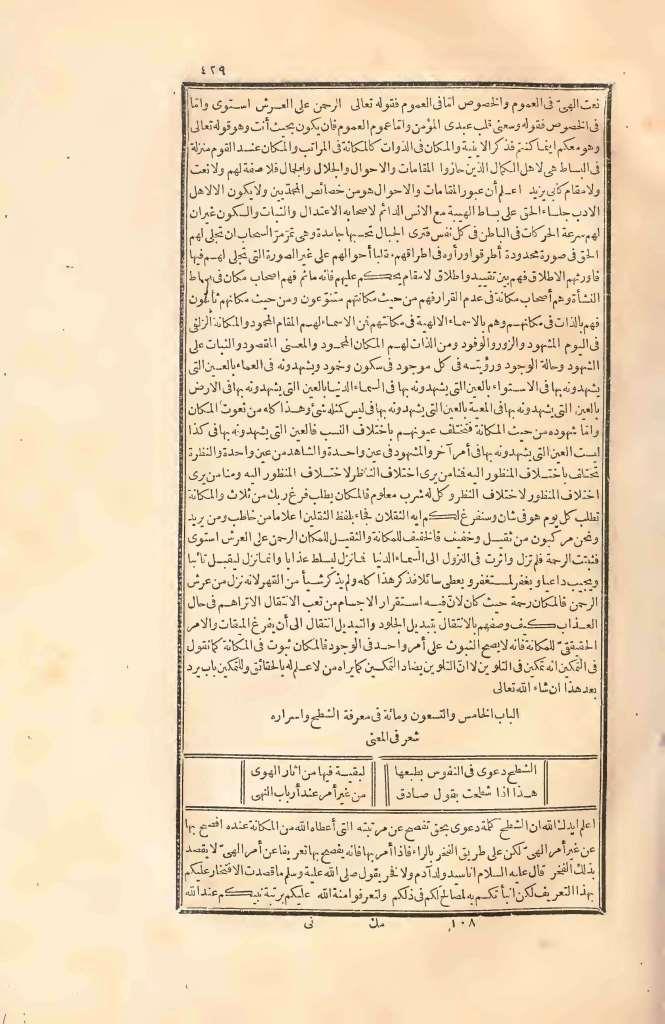 ٤٢٩
نعت الهىّ فى العموم والخصوص امّا فى العموم فقوله تعالى الرحمن على العرش استوى وامّا
فى الخصوص فقوله وسعنى قلب عبدى المؤمن وامّا عموم العموم فان يكون بحيث أنت وهو قوله تعالى
وهو معكم اينما كنتم فذكر الاينية والمكان فى الذوات كالمكانة فى المراتب والمكان عند القوم منزلة
فى البساط هى لاهل الكمال الذين حازوا المقامات والاحوال والجلال والجمال فلا صفة لهم ولا نعت
ولا مقام كأبى يزيد اعلم أن عبور المقامات والاحوال هو من خصائص المحمديين ولا يكون الا لاهل
الادب جلساء الحق على بساط الهيبة مع الانس الدائم لاصحابه الاعتدال والثبات والسكون غير ان
لهم سرعة الحركات فى الباطن فى كل نفس فترى الجبال تحسبها جامدة وهى تمرّ مرّ السحاب ان تجلى لهم
الحق فى صورة محدودة أطرقوا ورأوه فى اطراقهم مقلبا أحوالهم على غير الصورة التى تجلى لهم فيها
فاورثهم الاطلاق فهم بين تقييد واطلاق لا مقام يحكم عليهم فانه ما ثم فهم اصحاب مكان فى بساط
النشأة وهم أصحاب مكانة فى عدم القرار فهم من حيث مكانتهم متنوّعون ومن حيث مكانهم ثابتون
فهم بالذات فى مكانهم وهم بالاسماء الالهية فى مكانتهم فمن الاسماء لهم المقام المحمود والمكانة الزلفى
فى اليوم المشهود والزور والوفود ومن الذات لهم المكان المحدود والمعنى المقصود والثبات على
الشهود وحالة الوجود ورؤيته فى كل موجود فى سكون وخمود ويشهدونه فى العماء بالعين التى
يشهدونه بها فى الاستواء بالعين التى يشهدونه بها فى السماء الدنيا بالعين التى يشهدونه بها فى الارض
بالعين التى يشهدونه بها فى المعية بالعين التى يشهدونه بها فى ليس كمثله شئ وهذا كله من نعوت المكان
وامّا شهوده من حيث المكانة فتختلف عيونهم باختلاف النسب فالعين التى يشهدونه بها فى كذا
ليست العين التى يشهدونه بها فى أمر آخر والمشهود فى عين واحدة والشاهد من عين واحدة والنظرة
تختلف باختلاف المنظور اليه فمنا من يرى اختلاف النظر لاختلاف المنظور اليه ومنا من يرى
اختلاف المنظور لاختلاف النظر وكل له شرب معلوم فالمكان يطلب فرغ ربك من ثلاث والمكانة
تطلب كل يوم هو فى شان وسنفرغ لكم ايه الثقلان فجاء بلفظ الثقلين اعلاما من خاطب ومن يريد
ونحن مركبون من ثقيل وخفيف فالخفيف للمكانة والثقيل للمكان الرحمن على العرش استوى
فثبتت الرحمة فلم تزل وأثرت فى النزول الى السماء الدنيا فما نزل ليسلط عذابا وانما نزل ليقبل تائبا
ويجيب داعيا ويغفر لمستغفر ويعطى سائلا فذكر هذا كله ولم يذكر شيأ من القهر لانه نزل من عرش
الرحمن فالمكان رحمة حيث كان لانّ فيه استقرار الاجسام من تعب الانتقال الا تراهم فى حال
العذاب كيف وصفهم بالانتقال بتبديل الجلود والتبديل انتقال الى أن يفرغ الميقات والامر
الحقيقىّ للمكانة فانه لا يصح الثبوت على أمر واحد فى الوجود فالمكان ثبوت فى المكانة كما نقول
فى التمكين انه تمكين فى التلوين لا انّ التلوين يضاد التمكين كما يراه من لا علم له بالحقائق وللتمكين باب يرد
بعد هذا ان شاء الله تعالى
الباب الخامس والتسعون ومائة فى معرفة الشطح واسراره
شعر فى المعنى
الشطح دعوى فى النفوس بطبعها لبقية فيها من اثار الهوى
هذا اذا شطحت بقول صادق من غير أمر عند أرباب النهى
اعلم ايدك الله ان الشطح كلمة دعوى بحق تفصح عن مرتبته التى أعطاه الله من المكانة عنده افصح بها
عن غير أمر الهىّ لكن على طريق الفخر بالراء فاذا أمر بها فانه يفصح بها تعريفا عن أمر الهىّ لا يقصد
بذلك الفخر قال عليه السلام انا سيد ولد آدم ولا فخر يقول صلى الله عليه وسلم ما قصدت الافتخار عليكم
بهذا التعريف لكن انبأتكم به لمصالح لكم فى ذلكم ولتعرفوا منة الله عليكم برتبة نبيكم عند الله
١٠٨ مك نى